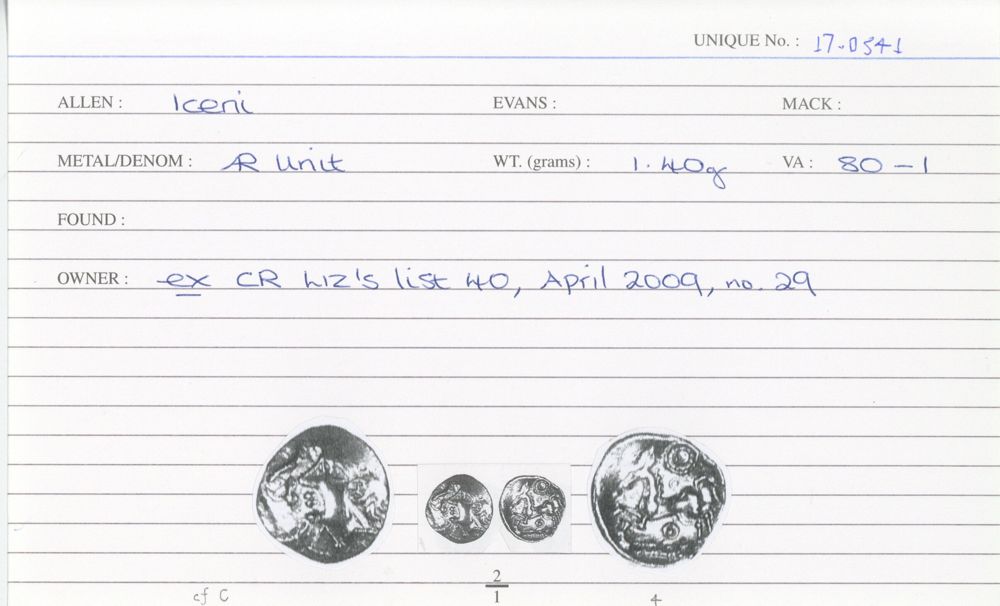 UNIQUE No. : 17.0541
ALLEN : Iceni EVANS : MACK :
METAL/DENOM : AR Unit WT. (grams) : 1.40g VA : 80-1
FOUND :
OWNER : ex CR Liz's list 40, April 2009, no. 29
2
cf C 1 4